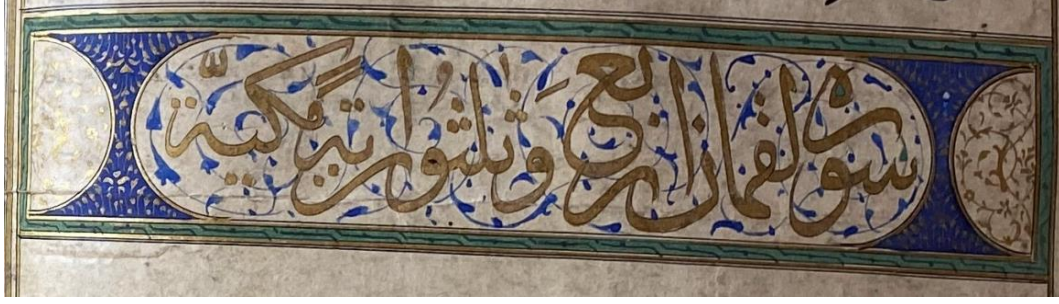 سورة لقمان اربع وثلثون اية مكية